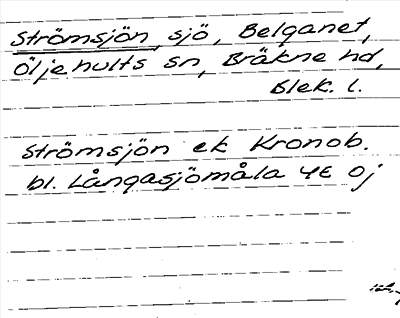 Strömsjön, sjö, Belganet,
Öljehults sn, Bräkne hd,
Blek. l.
Strömsjön ek Kronob.
bl. Långasjömåla 4E oj